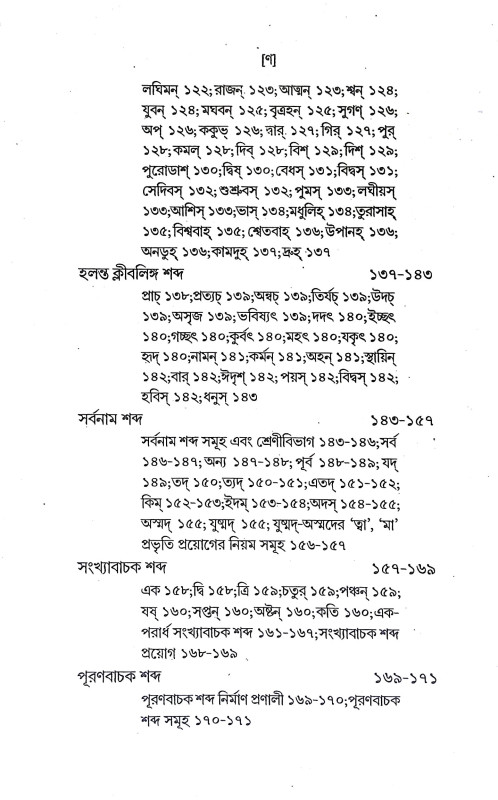 [ণ]
লঘিমন্ ১২২; রাজন্ ১২৩; আত্মন্ ১২৩; শ্বন্ ১২৪;
যুবন্ ১২৪; মঘবন্ ১২৫; বৃত্রহন্ ১২৫; সুগণ্ ১২৬;
অপ্ ১২৬; ককুভ্ ১২৬; দ্বার্ ১২৭; গির্ ১২৭; পুর্
১২৮; কমল্ ১২৮; দিব্ ১২৮; বিশ্ ১২৯; দিশ্ ১২৯;
পুরোডাশ্ ১৩০; দ্বিষ্ ১৩০; বেধস্ ১৩১; বিদ্বস্ ১৩১;
সেদিবস্ ১৩২; শুশ্রুবস্ ১৩২; পুমস্ ১৩৩; লঘীয়স্
১৩৩; আশিস্ ১৩৩; ভাস্ ১৩৪; মধুলিহ্ ১৩৪; তুরাসাহ্
১৩৫; বিশ্ববাহ্ ১৩৫; শ্বেতবাহ্ ১৩৬; উপানহ্ ১৩৬;
অনডুহ্ ১৩৬; কামদুহ্ ১৩৭; দ্রুহ্ ১৩৭
হলন্ত ক্লীবলিঙ্গ শব্দ ১৩৭-১৪৩
প্রাচ্ ১৩৮; প্রত্যচ্ ১৩৯; অন্বচ্ ১৩৯; তির্যচ্ ১৩৯; উদচ্
১৩৯; অসৃজ ১৩৯; ভবিষ্যৎ ১৩৯; দদৎ ১৪০; ইচ্ছৎ
১৪০; গচ্ছৎ ১৪০; কুর্বৎ ১৪০; মহৎ ১৪০; যকৃৎ ১৪০;
হৃদ্ ১৪০; নামন্ ১৪১; কর্মন্ ১৪১; অহন্ ১৪১; স্থায়িন্
১৪২; বার্ ১৪২; ঈদৃশ্ ১৪২; পয়স্ ১৪২; বিদ্বস্ ১৪২;
হবিস্ ১৪২; ধনুস্ ১৪৩
সর্বনাম শব্দ ১৪৩-১৫৭
সর্বনাম শব্দ সমূহ এবং শ্রেণীবিভাগ ১৪৩-১৪৬; সর্ব
১৪৬-১৪৭; অন্য ১৪৭-১৪৮; পূর্ব ১৪৮-১৪৯; যদ্
১৪৯; তদ্ ১৫০; ত্যদ্ ১৫০-১৫১; এতদ্ ১৫১-১৫২;
কিম্ ১৫২-১৫৩; ইদম্ ১৫৩-১৫৪; অদস্ ১৫৪-১৫৫;
অস্মদ্ ১৫৫; যুষ্মদ্ ১৫৫; যুষ্মদ্-অস্মদের ‘ত্বা’, ‘মা’
প্রভৃতি প্রয়োগের নিয়ম সমূহ ১৫৬-১৫৭
সংখ্যাবাচক শব্দ ১৫৭-১৬৯
এক ১৫৮; দ্বি ১৫৮; ত্রি ১৫৯; চতুর্ ১৫৯; পঞ্চন্ ১৫৯;
ষষ্ ১৬০; সপ্তন্ ১৬০; অষ্টন্ ১৬০; কতি ১৬০; এক-
পরার্ধ সংখ্যাবাচক শব্দ ১৬১-১৬৭; সংখ্যাবাচক শব্দ
প্রয়োগ ১৬৮-১৬৯
পূরণবাচক শব্দ ১৬৯-১৭১
পূরণবাচক শব্দ নির্মাণ প্রণালী ১৬৯-১৭০; পূরণবাচক
শব্দ সমূহ ১৭০-১৭১